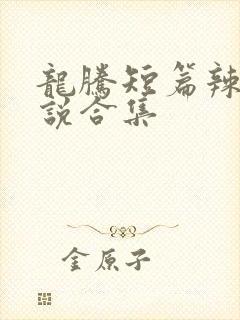 龍騰短篇辣
說合集
金原子